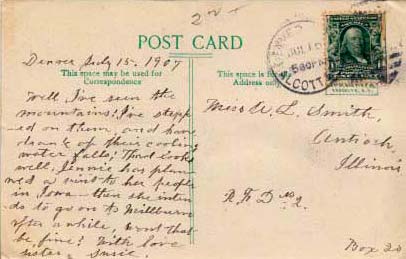 2
POST CARD
Denver July 15. 1907
This space may be used for
Correspondence
This space is for
Address only
JUL 15
5-30 PM
COTT
Well, I've seen the
mountains; I've stepp-
ed on them, and have
drank of their cooling
water falls; Thad looks
well; Jennie has plan-
ned a visit to her people
in Iowa then she inten
ds to go on to Millburn
after a while, Wont that
be fine? With love
sister Susie.
Miss U. L. Smith,
Antioch,
Illinois
R F D No 2.
Box 20